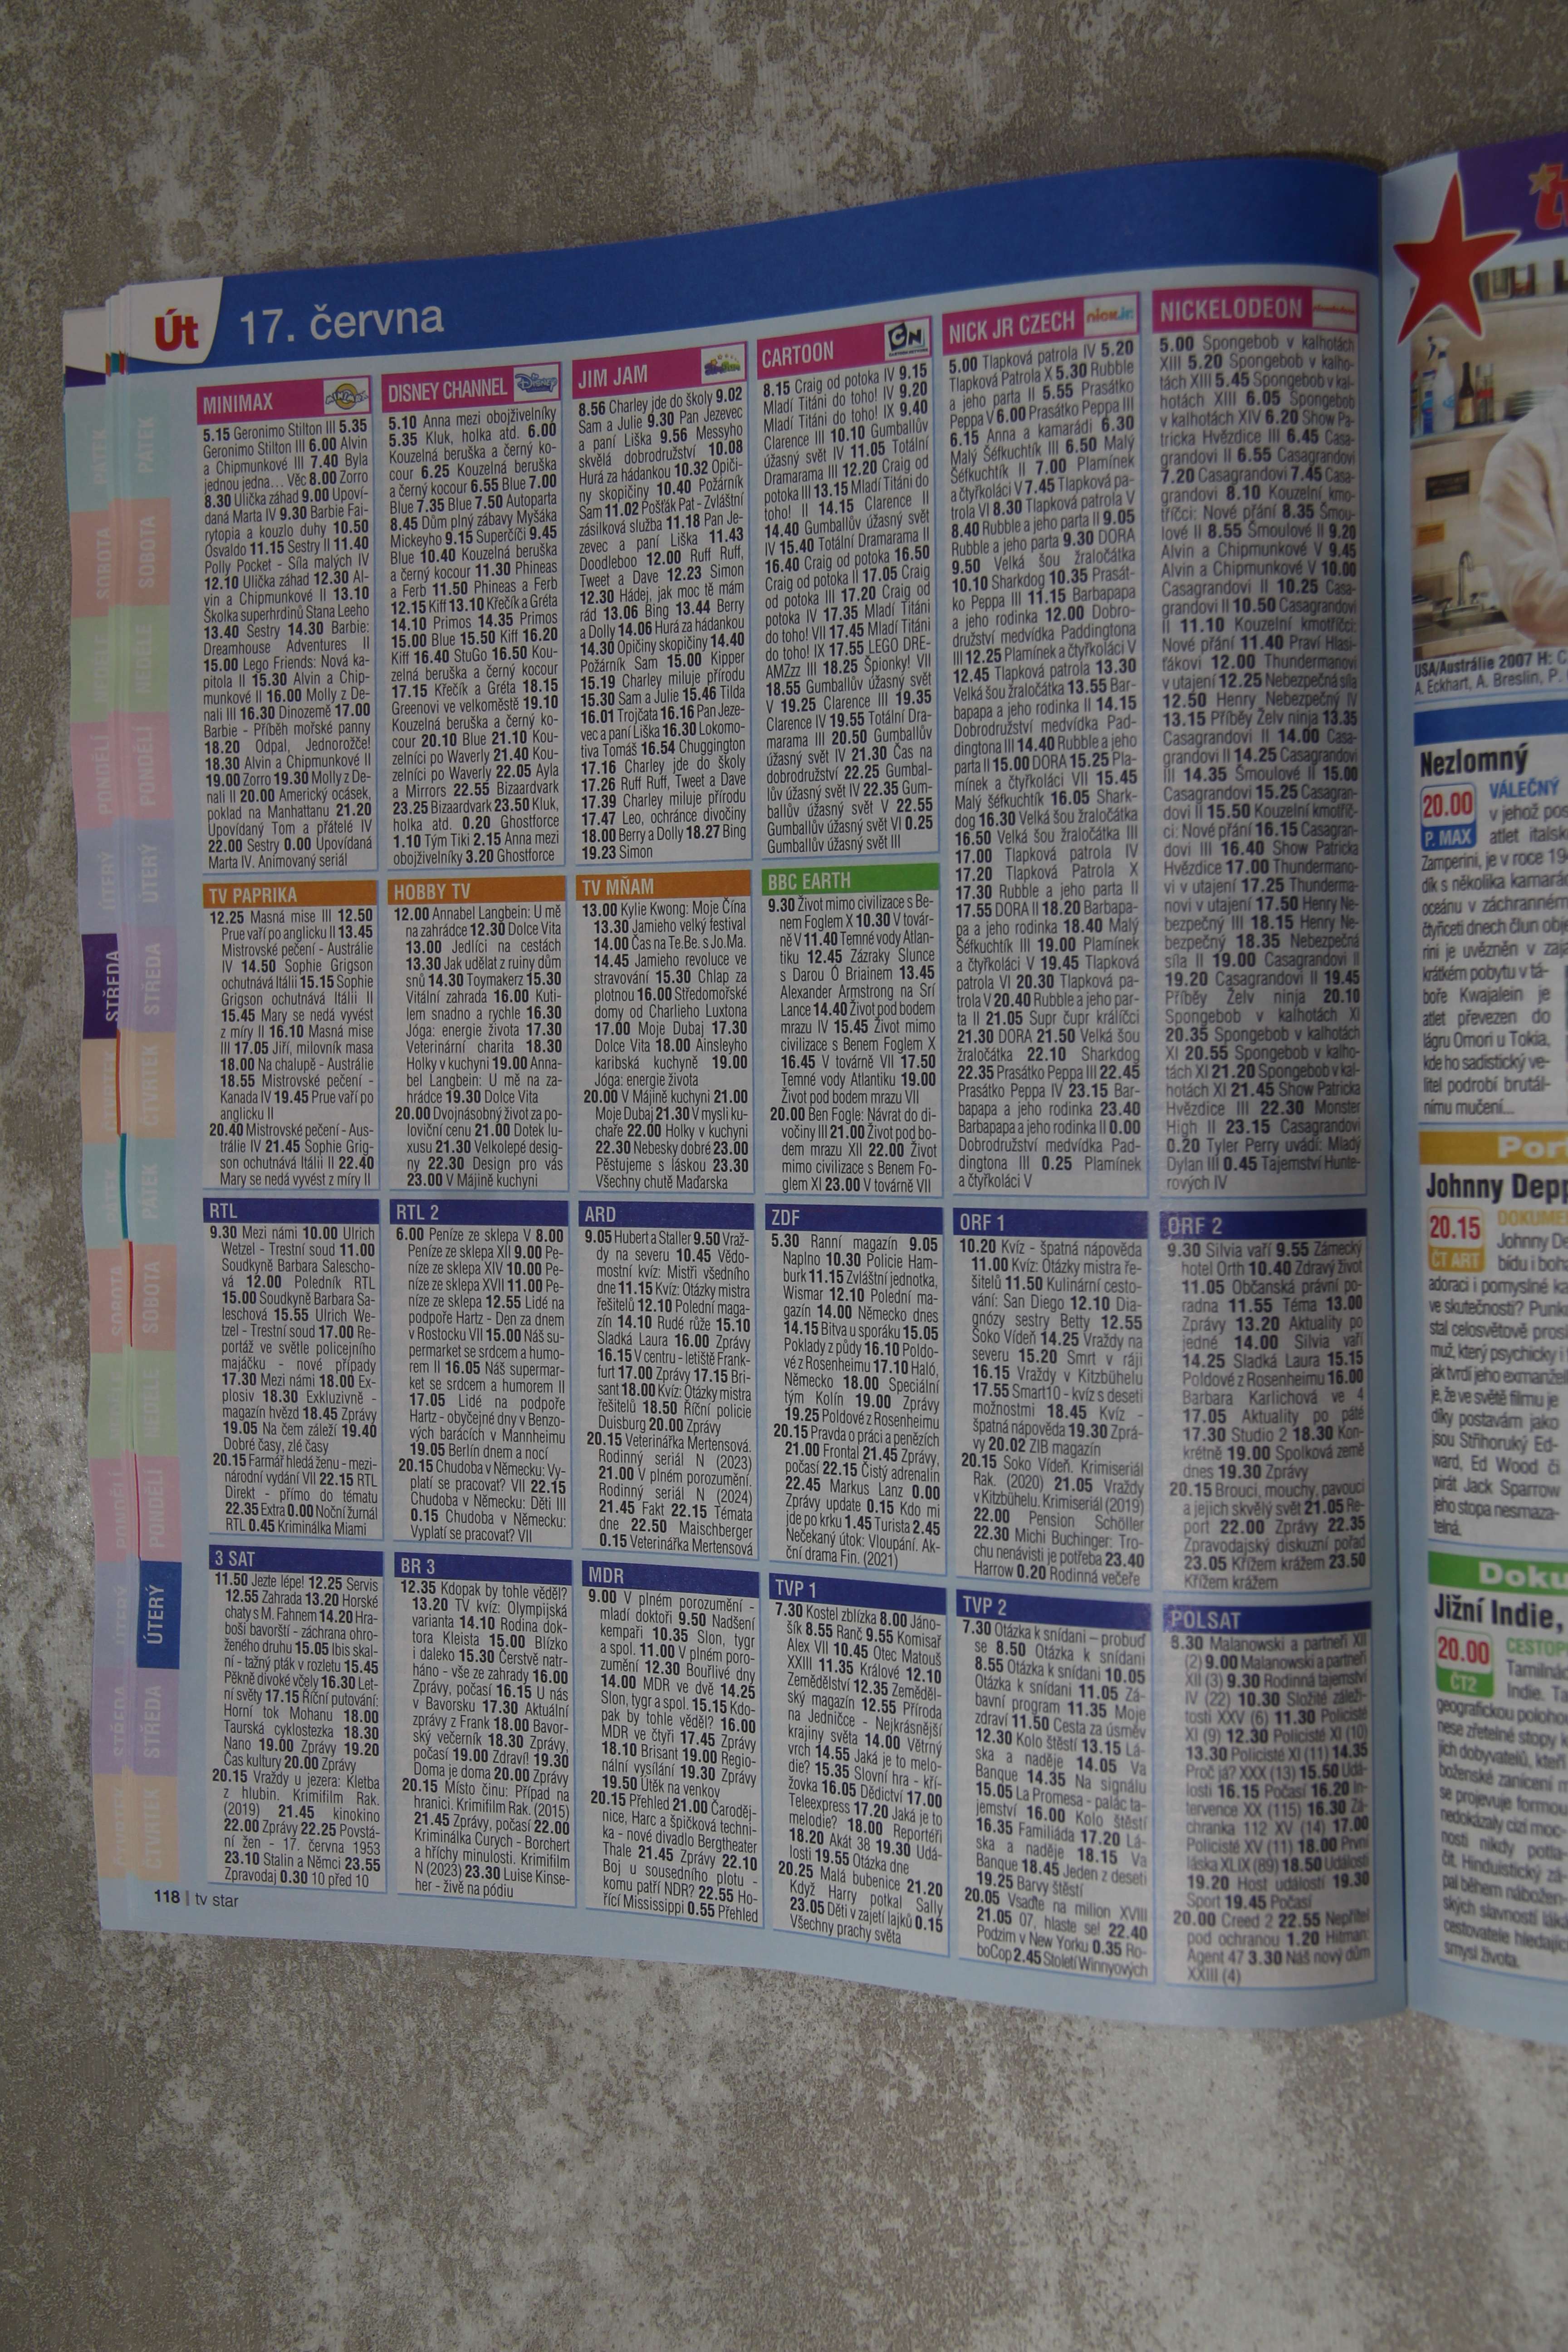 Út 17. června
MINIMAX
5.15 Geronimo Stilton III 5.35
Geronimo Stilton III 6.00 Alvin
a Chipmunkové III 7.40 Byla
jednou jedna... Věc 8.00 Zorro
8.30 Ulička záhad 9.00 Upoví-
daná Marta IV 9.30 Barbie Fai-
rytopia a kouzlo duhy 10.50
Osvaldo 11.15 Sestry II 11.40
Polly Pocket - Síla malých IV
12.10 Ulička záhad 12.30 Al-
vin a Chipmunkové II 13.10
Školka superhrdinů Stana Leeho
13.40 Sestry 14.30 Barbie:
Dreamhouse Adventures II
15.00 Lego Friends: Nová ka-
pitola II 15.30 Alvin a Chip-
munkové II 16.00 Molly z De-
nali III 16.30 Dinozemě 17.00
Barbie - Příběh mořské panny
18.20 Odpal, Jednorožče!
18.30 Alvin a Chipmunkové II
19.00 Zorro 19.30 Molly z De-
nali II 20.00 Americký ocásek,
poklad na Manhattanu 21.20
Upovídaný Tom a přátelé IV
22.00 Sestry 0.00 Upovídaná
Marta IV. Animovaný seriál
DISNEY CHANNEL
5.10 Anna mezi obojživelníky
5.35 Kluk, holka atd. 6.00
Kouzelná beruška a černý ko-
cour 6.25 Kouzelná beruška
a černý kocour 6.55 Blue 7.00
Blue 7.35 Blue 7.50 Autoparta
8.45 Dům plný zábavy Myšáka
Mickeyho 9.15 Superčíči 9.45
Blue 10.40 Kouzelná beruška
a černý kocour 11.30 Phineas
a Ferb 11.50 Phineas a Ferb
12.15 Kiff 13.10 Křečík a Gréta
14.10 Primos 14.35 Primos
15.00 Blue 15.50 Kiff 16.20
Kiff 16.40 StuGo 16.50 Kou-
zelná beruška a černý kocour
17.15 Křečík a Gréta 18.15
Greenovi ve velkoměstě 19.10
Kouzelná beruška a černý ko-
cour 20.10 Blue 21.10 Kou-
zelníci po Waverly 21.40 Kou-
zelníci po Waverly 22.05 Ayla
a Mirrors 22.55 Bizaardvark
23.25 Bizaardvark 23.50 Kluk,
holka atd. 0.20 Ghostforce
1.10 Tým Tiki 2.15 Anna mezi
obojživelníky 3.20 Ghostforce
JIM JAM
8.56 Charley jde do školy 9.02
Sam a Julie 9.30 Pan Jezevec
a paní Liška 9.56 Messyho
skvělá dobrodružství 10.08
Hurá za hádankou 10.32 Opiči-
ny skopičiny 10.40 Požárník
Sam 11.02 Pošťák Pat - Zvláštní
zásilková služba 11.18 Pan Je-
zevec a paní Liška 11.43
Doodleboo 12.00 Ruff Ruff,
Tweet a Dave 12.23 Simon
12.30 Hádej, jak moc tě mám
rád 13.06 Bing 13.44 Berry
a Dolly 14.06 Hurá za hádankou
14.30 Opičiny skopičiny 14.40
Požárník Sam 15.00 Kipper
15.19 Charley miluje přírodu
15.30 Sam a Julie 15.46 Tilda
16.01 Trojčata 16.16 Pan Jeze-
vec a paní Liška 16.30 Lokomo-
tiva Tomáš 16.54 Chuggington
17.16 Charley jde do školy
17.26 Ruff Ruff, Tweet a Dave
17.39 Charley miluje přírodu
17.47 Leo, ochránce divočiny
18.00 Berry a Dolly 18.27 Bing
19.23 Simon
CARTOON
8.15 Craig od potoka IV 9.15
Mladí Titáni do toho! IV 9.20
Mladí Titáni do toho! IX 9.40
Clarence III 10.10 Gumballův
úžasný svět IV 11.05 Totální
Dramarama III 12.20 Craig od
potoka III 13.15 Mladí Titáni do
toho! II 14.15 Clarence II
14.40 Gumballův úžasný svět
IV 15.40 Totální Dramarama II
16.40 Craig od potoka 16.50
Craig od potoka II 17.05 Craig
od potoka III 17.20 Craig od
potoka IV 17.35 Mladí Titáni
do toho! VII 17.45 Mladí Titáni
do toho! IX 17.55 LEGO DRE-
AMZzz III 18.25 Špionky! VII
18.55 Gumballův úžasný svět
V 19.25 Clarence III 19.35
Clarence IV 19.55 Totální Dra-
marama III 20.50 Gumballův
úžasný svět IV 21.30 Čas na
dobrodružství 22.25 Gumbal-
lův úžasný svět IV 22.35 Gum-
ballův úžasný svět V 22.55
Gumballův úžasný svět VI 0.25
Gumballův úžasný svět III
NICK JR CZECH
5.00 Tlapková patrola IV 5.20
Tlapková Patrola X 5.30 Rubble
a jeho parta II 5.55 Prasátko
Peppa V 6.00 Prasátko Peppa III
6.15 Anna a kamarádi 6.30
Malý Šéfkuchtík III 6.50 Malý
Šéfkuchtík II 7.00 Plamínek
a čtyřkoláci V 7.45 Tlapková pa-
trola VI 8.30 Tlapková patrola V
8.40 Rubble a jeho parta II 9.05
Rubble a jeho parta 9.30 DORA
9.50 Velká šou žraločátka
10.10 Sharkdog 10.35 Prasát-
ko Peppa III 11.15 Barbapapa
a jeho rodinka 12.00 Dobro-
družství medvídka Paddingtona
III 12.25 Plamínek a čtyřkoláci V
12.45 Tlapková patrola 13.30
Velká šou žraločátka 13.55 Bar-
bapapa a jeho rodinka II 14.15
Dobrodružství medvídka Pad-
dingtona III 14.40 Rubble a jeho
parta II 15.00 DORA 15.25 Pla-
mínek a čtyřkoláci VII 15.45
Malý šéfkuchtík 16.05 Shark-
dog 16.30 Velká šou žraločátka
16.50 Velká šou žraločátka III
17.00 Tlapková patrola IV
17.20 Tlapková Patrola X
17.30 Rubble a jeho parta II
17.55 DORA II 18.20 Barbapa-
pa a jeho rodinka 18.40 Malý
Šéfkuchtík III 19.00 Plamínek
a čtyřkoláci V 19.45 Tlapková
patrola VI 20.30 Tlapková pa-
trola V 20.40 Rubble a jeho par-
ta II 21.05 Supr čupr králíčci
21.30 DORA 21.50 Velká šou
žraločátka 22.10 Sharkdog
22.35 Prasátko Peppa III 22.45
Prasátko Peppa IV 23.15 Bar-
bapapa a jeho rodinka 23.40
Barbapapa a jeho rodinka II 0.00
Dobrodružství medvídka Pad-
dingtona III 0.25 Plamínek
a čtyřkoláci V
NICKELODEON
5.00 Spongebob v kalhotách
XIII 5.20 Spongebob v kalho-
tách XIII 5.45 Spongebob v kal-
hotách XIII 6.05 Spongebob
v kalhotách XIV 6.20 Show Pa-
tricka Hvězdice III 6.45 Casa-
grandovi II 6.55 Casagrandovi
7.20 Casagrandovi 7.45 Casa-
grandovi 8.10 Kouzelní kmo-
tříčci: Nové přání 8.35 Šmou-
lové II 8.55 Šmoulové II 9.20
Alvin a Chipmunkové V 9.45
Alvin a Chipmunkové V 10.00
Casagrandovi II 10.25 Casa-
grandovi II 10.50 Casagrandovi
II 11.10 Kouzelní kmotříčci:
Nové přání 11.40 Praví Hlasi-
ťákovi 12.00 Thundermanovi
v utajení 12.25 Nebezpečná síla
12.50 Henry Nebezpečný IV
13.15 Příběhy Želv ninja 13.35
Casagrandovi II 14.00 Casa-
grandovi II 14.25 Casagrandovi
III 14.35 Šmoulové II 15.00
Casagrandovi 15.25 Casagran-
dovi II 15.50 Kouzelní kmotříč-
ci: Nové přání 16.15 Casagran-
dovi III 16.40 Show Patricka
Hvězdice 17.00 Thundermano-
vi v utajení 17.25 Thunderma-
novi v utajení 17.50 Henry Ne-
bezpečný III 18.15 Henry Ne-
bezpečný 18.35 Nebezpečná
síla II 19.00 Casagrandovi II
19.20 Casagrandovi II 19.45
Příběy Želv ninja 20.10
Spongebob v kalhotách XI
20.35 Spongebob v kalhotách
XI 20.55 Spongebob v kalho-
tách XI 21.20 Spongebob v kal-
hotách XI 21.45 Show Patricka
Hvězdice III 22.30 Monster
High II 23.15 Casagrandovi
0.20 Tyler Perry uvádí: Mladý
Dylan III 0.45 Tajemství Hunte-
rových IV
TV PAPRIKA
12.25 Masná mise III 12.50
Prue vaří po anglicku II 13.45
Mistrovské pečení - Austrálie
IV 14.50 Sophie Grigson
ochutnává Itálii 15.15 Sophie
Grigson ochutnává Itálii II
15.45 Mary se nedá vyvést
z míry II 16.10 Masná mise
III 17.05 Jiří, milovník masa
18.00 Na chalupě - Austrálie
18.55 Mistrovské pečení -
Kanada IV 19.45 Prue vaří po
anglicku II
20.40 Mistrovské pečení - Aus-
trálie IV 21.45 Sophie Grig-
son ochutnává Itálii II 22.40
Mary se nedá vyvést z míry II
HOBBY TV
12.00 Annabel Langbein: U mě
na zahrádce 12.30 Dolce Vita
13.00 Jedlíci na cestách
13.30 Jak udělat z ruiny dům
snů 14.30 Toymakerz 15.30
Vitální zahrada 16.00 Kuti-
lem snadno a rychle 16.30
Jóga: energie života 17.30
Veterinární charita 18.30
Holky v kuchyni 19.00 Anna-
bel Langbein: U mě na za-
hrádce 19.30 Dolce Vita
20.00 Dvojnásobný život za po-
loviční cenu 21.00 Dotek lu-
xusu 21.30 Velkolepé desig-
ny 22.30 Design pro vás
23.00 V Májině kuchyni
TV MŇAM
13.00 Kylie Kwong: Moje Čína
13.30 Jamieho velký festival
14.00 Čas na Te.Be. s Jo.Ma.
14.45 Jamieho revoluce ve
stravování 15.30 Chlap za
plotnou 16.00 Středomořské
domy od Charlieho Luxtona
17.00 Moje Dubaj 17.30
Dolce Vita 18.00 Ainsleyho
karibská kuchyně 19.00
Jóga: energie života
20.00 V Májině kuchyni 21.00
Moje Dubaj 21.30 V mysli ku-
chaře 22.00 Holky v kuchyni
22.30 Nebesky dobré 23.00
Pěstujeme s láskou 23.30
Všechny chutě Maďarska
BBC EARTH
9.30 Život mimo civilizace s Be-
nem Foglem X 10.30 V továr-
ně V 11.40 Temné vody Atlan-
tiku 12.45 Zázraky Slunce
s Darou Ó Briainem 13.45
Alexander Armstrong na Srí
Lance 14.40 Život pod bodem
mrazu IV 15.45 Život mimo
civilizace s Benem Foglem X
16.45 V továrně VII 17.50
Temné vody Atlantiku 19.00
Život pod bodem mrazu VII
20.00 Ben Fogle: Návrat do di-
vočiny III 21.00 Život pod bo-
dem mrazu XII 22.00 Život
mimo civilizace s Benem Fo-
glem XI 23.00 V továrně VII
RTL
9.30 Mezi námi 10.00 Ulrich
Wetzel - Trestní soud 11.00
Soudkyně Barbara Salescho-
vá 12.00 Poledník RTL
15.00 Soudkyně Barbara Sa-
leschová 15.55 Ulrich We-
tzel - Trestní soud 17.00 Re-
portáž ve světle policejního
majáčku - nové případy
17.30 Mezi námi 18.00 Ex-
plosiv 18.30 Exkluzivně -
magazín hvězd 18.45 Zprávy
19.05 Na čem záleží 19.40
Dobré časy, zlé časy
20.15 Farmář hledá ženu - mezi-
národní vydání VII 22.15 RTL
Direkt - přímo do tématu
22.35 Extra 0.00 Noční žurnál
RTL 0.45 Kriminálka Miami
RTL 2
6.00 Peníze ze sklepa V 8.00
Peníze ze sklepa XII 9.00 Pe-
níze ze sklepa XIV 10.00 Pe-
níze ze sklepa XVII 11.00 Pe-
níze ze sklepa 12.55 Lidé na
podpoře Hartz - Den za dnem
v Rostocku VII 15.00 Náš su-
permarket se srdcem a humo-
rem II 16.05 Náš supermar-
ket se srdcem a humorem II
17.05 Lidé na podpoře
Hartz - obyčejné dny v Benzo-
vých barácích v Mannheimu
19.05 Berlín dnem a nocí
20.15 Chudoba v Německu: Vy-
platí se pracovat? VII 22.15
Chudoba v Německu: Děti III
0.15 Chudoba v Německu:
Vyplatí se pracovat? VII
ARD
9.05 Hubert a Staller 9.50 Vraž-
dy na severu 10.45 Vědo-
mostní kvíz: Mistři všedního
dne 11.15 Kvíz: Otázky mistra
řešitelů 12.10 Polední maga-
zín 14.10 Rudé růže 15.10
Sladká Laura 16.00 Zprávy
16.15 V centru - letiště Frank-
furt 17.00 Zprávy 17.15 Bri-
sant 18.00 Kvíz: Otázky mistra
řešitelů 18.50 Říční policie
Duisburg 20.00 Zprávy
20.15 Veterinářka Mertensová.
Rodinný seriál N (2023)
21.00 V plném porozumění.
Rodinný seriál N (2024)
21.45 Fakt 22.15 Témata
dne 22.50 Maischberger
0.15 Veterinářka Mertensová
ZDF
5.30 Ranní magazín 9.05
Naplno 10.30 Policie Ham-
burk 11.15 Zvláštní jednotka,
Wismar 12.10 Polední ma-
gazín 14.00 Německo dnes
14.15 Bitva u sporáku 15.05
Poklady z půdy 16.10 Poldo-
vé z Rosenheimu 17.10 Haló,
Německo 18.00 Speciální
tým Kolín 19.00 Zprávy
19.25 Poldové z Rosenheimu
20.15 Pravda o práci a penězích
21.00 Frontal 21.45 Zprávy,
počasí 22.15 Čistý adrenalin
22.45 Markus Lanz 0.00
Zprávy update 0.15 Kdo mi
jde po krku 1.45 Turista 2.45
Nečekaný útok: Vloupání. Ak-
ční drama Fin. (2021)
ORF 1
10.20 Kvíz - špatná nápověda
11.00 Kvíz: Otázky mistra ře-
šitelů 11.50 Kulinární cesto-
vání: San Diego 12.10 Dia-
gnózy sestry Betty 12.55
Soko Vídeň 14.25 Vraždy na
severu 15.20 Smrt v ráji
16.15 Vraždy v Kitzbühelu
17.55 Smart10 - kvíz s deseti
možnostmi 18.45 Kvíz -
špatná nápověda 19.30 Zprá-
vy 20.02 ZIB magazín
20.15 Soko Vídeň. Krimiseriál
Rak. (2020) 21.05 Vraždy
v Kitzbühelu. Krimiseriál (2019)
22.00 Pension Schöller
22.30 Michi Buchinger: Tro-
chu nenávisti je potřeba 23.40
Harrow 0.20 Rodinná večeře
ORF 2
9.30 Silvia vaří 9.55 Zámecký
hotel Orth 10.40 Zdravý život
11.05 Občanská právní po-
radna 11.55 Téma 13.00
Zprávy 13.20 Aktuality po
jedné 14.00 Silvia vaří
14.25 Sladká Laura 15.15
Poldové z Rosenheimu 16.00
Barbara Karlichová ve 4
17.05 Aktuality po páté
17.30 Studio 2 18.30 Kon-
krétně 19.00 Spolková země
dnes 19.30 Zprávy
20.15 Brouci, mouchy, pavouci
a jejich skvělý svět 21.05 Re-
port 22.00 Zprávy 22.35
Zpravodajský diskuzní pořad
23.05 Křížem krážem 23.50
Křížem krážem
3 SAT
11.50 Jezte lépe! 12.25 Servis
12.55 Zahrada 13.20 Horské
chaty s M. Fahnem 14.20 Hra-
boši bavorští - záchrana ohro-
ženého druhu 15.05 Ibis skal-
ní - tažný pták v rozletu 15.45
Pěkně divoké včely 16.30 Let-
ní světy 17.15 Říční putování:
Horní tok Mohanu 18.00
Taurská cyklostezka 18.30
Nano 19.00 Zprávy 19.20
Čas kultury 20.00 Zprávy
20.15 Vraždy u jezera: Kletba
z hlubin. Krimifilm Rak.
(2019) 21.45 kinokino
22.00 Zprávy 22.25 Povstá-
ní žen - 17. června 1953
23.10 Stalin a Němci 23.55
Zpravodaj 0.30 10 před 10
BR 3
12.35 Kdopak by tohle věděl?
13.20 TV kvíz: Olympijská
varianta 14.10 Rodina dok-
tora Kleista 15.00 Blízko
i daleko 15.30 Čerstvě natr-
háno - vše ze zahrady 16.00
Zprávy, počasí 16.15 U nás
v Bavorsku 17.30 Aktuální
zprávy z Frank 18.00 Bavor-
ský večerník 18.30 Zprávy,
počasí 19.00 Zdraví! 19.30
Doma je doma 20.00 Zprávy
20.15 Místo činu: Případ na
hranici. Krimifilm Rak. (2015)
21.45 Zprávy, počasí 22.00
Kriminálka Curych - Borchert
a hříchy minulosti. Krimifilm
N (2023) 23.30 Luise Kinse-
her - živě na pódiu
MDR
9.00 V plném porozumění -
mladí doktoři 9.50 Nadšení
kempaři 10.35 Slon, tygr
a spol. 11.00 V plném poro-
zumění 12.30 Bouřlivé dny
14.00 MDR ve dvě 14.25
Slon, tygr a spol. 15.15 Kdo-
pak by tohle věděl? 16.00
MDR ve čtyři 17.45 Zprávy
18.10 Brisant 19.00 Regio-
nální vysílání 19.30 Zprávy
19.50 Útěk na venkov
20.15 Přehled 21.00 Čaroděj-
nice, Harc a špičková techni-
ka - nové divadlo Bergtheater
Thale 21.45 Zprávy 22.10
Boj u sousedního plotu -
komu patří NDR? 22.55 Ho-
řící Mississippi 0.55 Přehled
TVP 1
7.30 Kostel zblízka 8.00 Jáno-
šík 8.55 Ranč 9.55 Komisař
Alex VII 10.45 Otec Matouš
XXIII 11.35 Králové 12.10
Zemědělství 12.35 Zeměděl-
ský magazín 12.55 Příroda
na Jedničce - Nejkrásnější
krajiny světa 14.00 Větrný
vrch 14.55 Jaká je to melo-
die? 15.35 Slovní hra - kří-
žovka 16.05 Dědictví 17.00
Teleexpress 17.20 Jaká je to
melodie? 18.00 Reportéři
18.20 Akát 38 19.30 Udá-
losti 19.55 Otázka dne
20.25 Malá bubenice 21.20
Když Harry potkal Sally
23.05 Děti v zajetí lajků 0.15
Všechny prachy světa
TVP 2
7.30 Otázka k snídani – probuď
se 8.50 Otázka k snídani
8.55 Otázka k snídani 10.05
Otázka k snídani 11.05 Zá-
bavní program 11.35 Moje
zdraví 11.50 Cesta za úsměv
12.30 Kolo štěstí 13.15 Lá-
ska a naděje 14.05 Va
Banque 14.35 Na signálu
15.05 La Promesa - palác ta-
jemství 16.00 Kolo štěstí
16.35 Familiáda 17.20 Lá-
ska a naděje 18.15 Va
Banque 18.45 Jeden z deseti
19.25 Barvy štěstí
20.05 Vsaďte na milion XVIII
21.05 07, hlaste se! 22.40
Podzim v New Yorku 0.35 Ro-
boCop 2.45 Století Winnyových
POLSAT
8.30 Malanowski a partneři XII
(2) 9.00 Malanowski a partneři
XII (3) 9.30 Rodinná tajemství
IV (22) 10.30 Složité záleži-
tosti XXV (6) 11.30 Policisté
XI (9) 12.30 Policisté XI (10)
13.30 Policisté XI (11) 14.35
Proč já? XXX (13) 15.50 Udá-
losti 16.15 Počasí 16.20 In-
tervence XX (115) 16.30 Zá-
chranka 112 XV (14) 17.00
Policisté XV (11) 18.00 První
láska XLIX (89) 18.50 Události
19.20 Host událostí 19.30
Sport 19.45 Počasí
20.00 Creed 2 22.55 Nepřítel
pod ochranou 1.20 Hitman:
Agent 47 3.30 Náš nový dům
XXIII (4)
118 | tv star
PÁTEK
SOBOTA
NEDĚLE
PONDĚLÍ
ÚTERÝ
STŘEDA
ČTVRTEK
PÁTEK
SOBOTA
NEDĚLE
PONDĚLÍ
ÚTERÝ
STŘEDA
ČTVRTEK
USA/Austrálie 2007 H:
A. Eckhart, A. Breslin, P.
Nezlomný
20.00
P. MAX
VÁLEČNÝ
v jehož
atlet italsk
Zamperini, je v roce 19
dík s několika kamará
oceánu v záchranném
čtyřiceti dnech člun obje
rini je uvězněn v zaja
krátkém pobytu v tá-
boře Kwajalein je
atlet převezen do
lágru Omori u Tokia,
kde ho sadistický ve-
litel podrobí brutál-
nímu mučení...
Port
Johnny Depp
20.15
ČT ART
DOKUME
Johnny De
bídu i boha
adoraci i pomyslné ka
ve skutečnosti? Punk
stal celosvětově pros
muž, který psychicky i
jak tvrdí jeho exmanžel
je, že ve světě filmu je
díky postavám jako
jsou Střihoruký Ed-
ward, Ed Wood či
pirát Jack Sparrow
jeho stopa nesmaza-
telná.
Doku
Jižní Indie,
20.00
ČT2
CESTOP
Tamilnád
Indie. Ta
geografickou polohou
nese zřetelné stopy
jich dobyvatelů, kteří
boženské zanícení
se projevuje formou
nedokázaly cizí moc-
nosti nikdy potla-
čit. Hinduistický za-
pal během nábožen-
ských slavností
cestovatele hledajíc
smysl života.